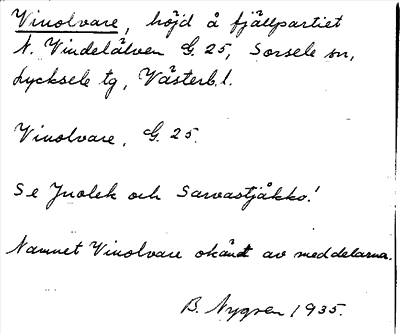 Vinolvare, höjd å fjällpartiet
N. Vindelälven G. 25, Sorsele sn,
Lycksele tg, Västerb. l.
Vinolvare, G. 25.
Se Juolek och Sarvastjåkko!
Namnet Vinolvare okänt av meddelarna.
B. Nygren 1935.